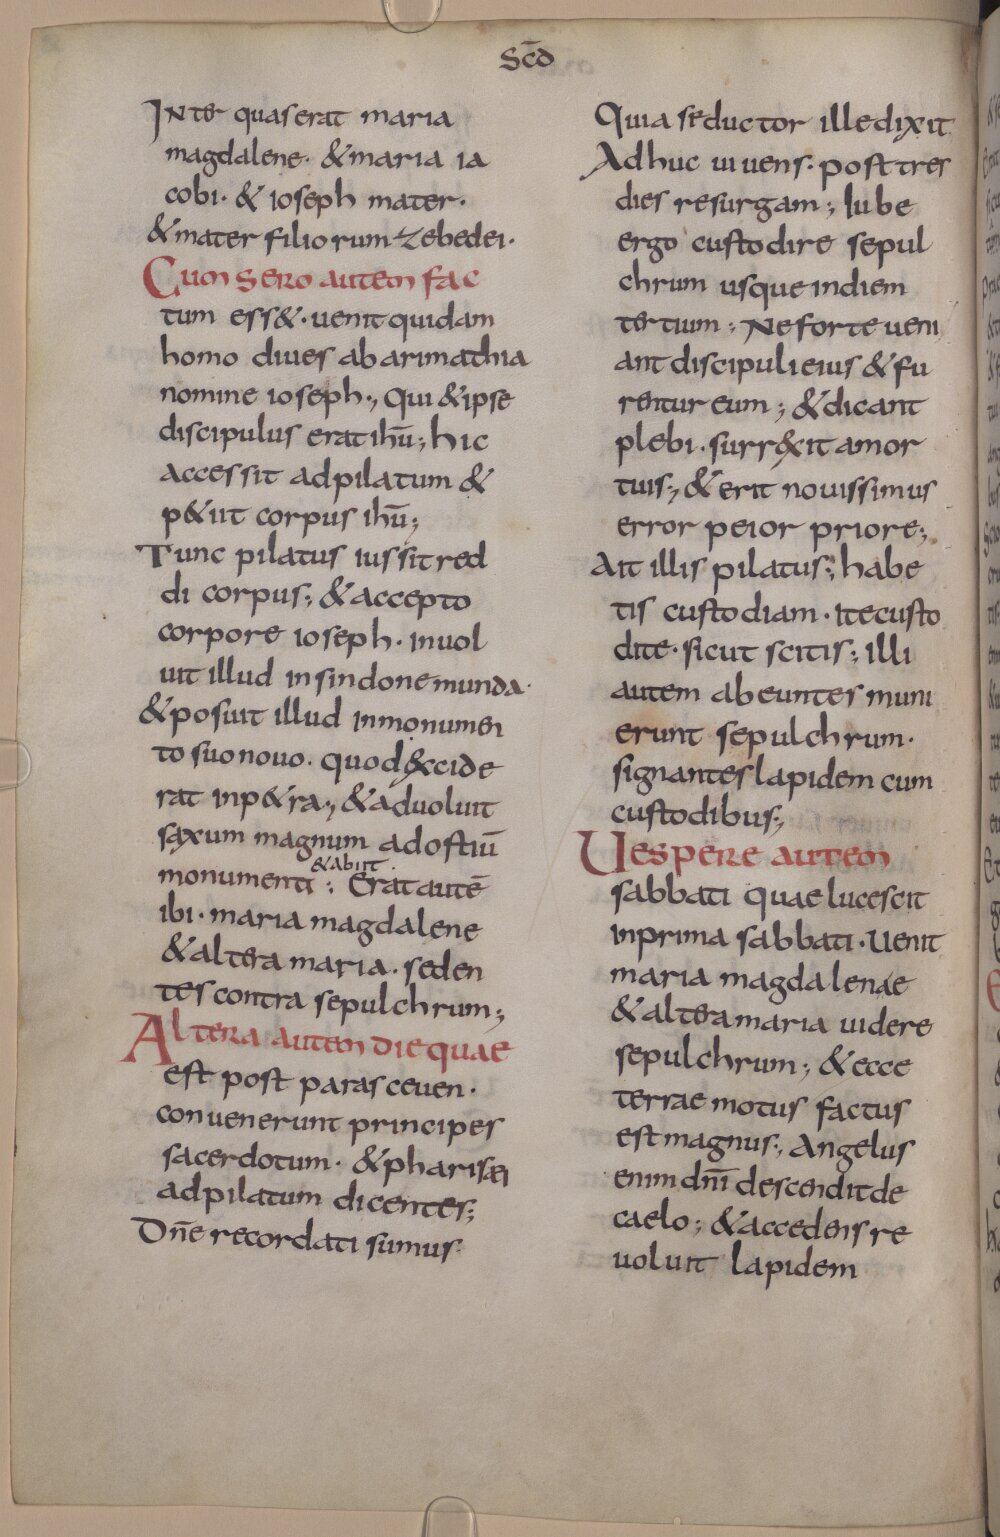 Scd̄
Inter quas erat maria
magdalene· & maria ia
cobi· & ioseph mater·
& mater filiorum zebedei·
Cum sero autem fac
tum ess&· uenit quidam
homo diues ab arimathia
nomine ioseph; Qui & ipse
discipulus erat ihū; hic
accessit ad pilatum &
p&iit corpus ihū;
Tunc pilatus iussit red
di corpus; & accepto
corpore ioseph· inuol
uit illud in sindone munda·
& posuit illud in monumen
to suo nouo· quod &cide
rat in p&ra; & aduoluit
saxum magnum ad ostiū
& abiit·
monumenti; Erat autē
ibi· maria magdalene
& altera maria· seden
tes contra sepulchrum;
Altera autem die quae
est post parasceuen·
conuenerunt principes
sacerdotum· & pharisæi
ad pilatum dicentes;
Dn̄e recordati sumus·
Quia seductor ille dixit
Adhuc uiuens· post tres
dies resurgam; Iube
ergo custodire sepul
chrum usque in diem
tertium; Ne forte ueni
ant discipuli eius & fu
rentur eum; & dicant
plebi· surr&xit a mor
tuis; & erit nouissimus
error peior priore;
Ait illis pilatus; habe
tis custodiam· ite custo
dite· sicut scitis; illi
autem abeuntes muni
erunt sepulchrum·
signantes lapidem cum
custodibus;
Uespere autem
sabbati quae lucescit
in prima sabbati· Uenit
maria magdalenae
& altera maria uidere
sepulchrum; & ecce
terrae motus factus
est magnus; Angelus
enim dn̄i descendit de
caelo; & accedens re
uoluit lapidem